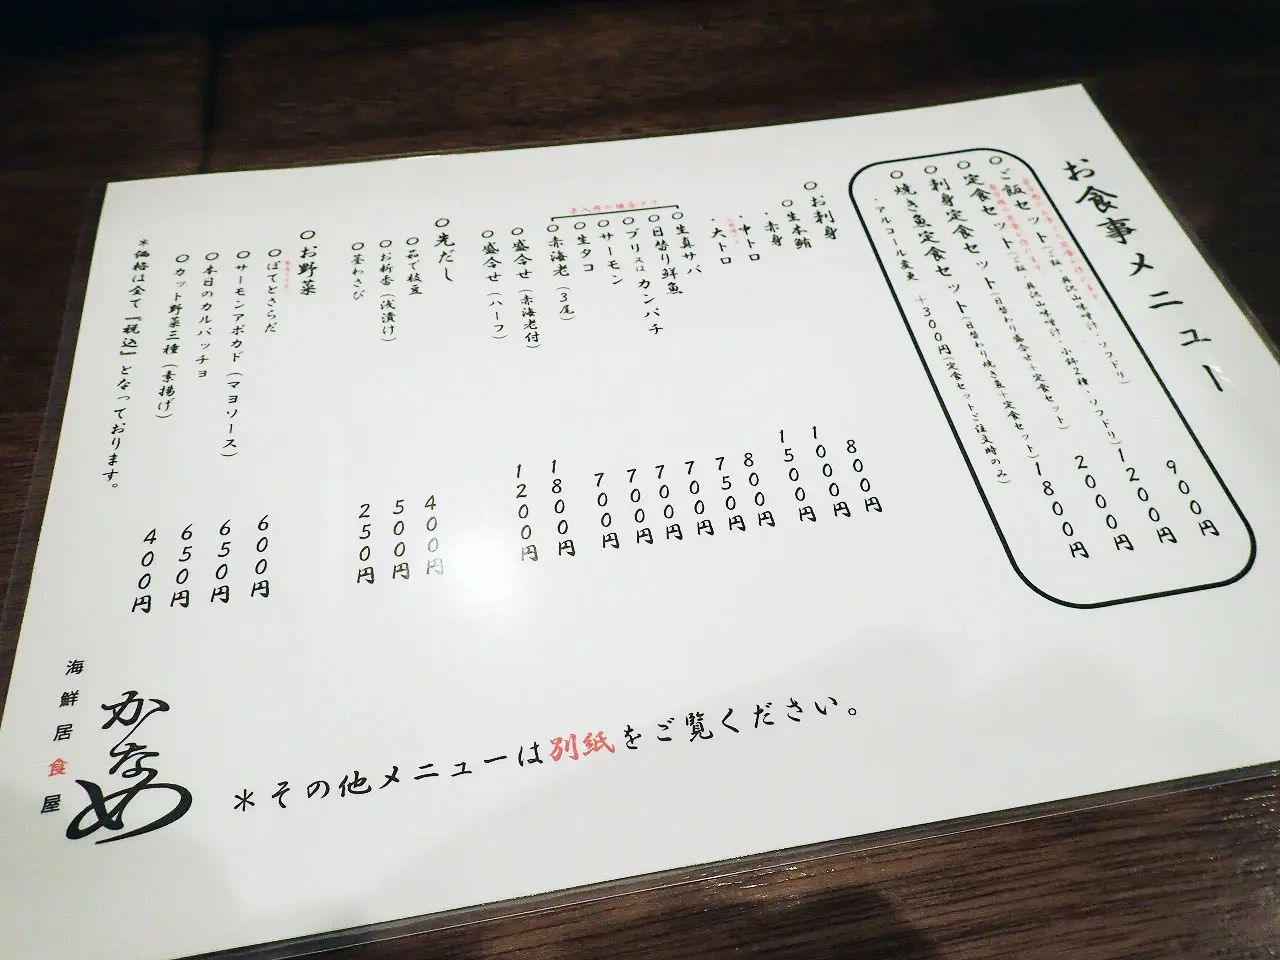 お食事メニュー
○ご飯セット(ご飯・具沢山味噌汁・ソフドリ) 900円
○定食セット(ご飯・具沢山味噌汁・小鉢2種・ソフドリ) 1200円
○刺身定食セット(日替わり盛合せ+定食セット) 2000円
○焼き魚定食セット(日替わり焼き魚+定食セット) 1800円
・アルコール変更 +300円(定食セットご注文時のみ)
○お刺身
○生本鮪
・赤身 800円
・中トロ 1000円
・大トロ 1500円
○生真サバ 800円
○日替り鮮魚 750円
○ブリ又はカンパチ 700円
○サーモン 700円
○生タコ 700円
○赤海老(3尾) 700円
○盛合せ(赤海老付) 1800円
○盛合せ(ハーフ) 1200円
○先だし
○茹で枝豆 400円
○お新香(浅漬け) 500円
○茎わさび 250円
○お野菜
○ぽてとさらだ 600円
○サーモンアボカド(マヨソース) 650円
○本日のカルパッチョ 650円
○カット野菜三種(素揚げ) 400円
*価格は全て『税込』となっております。
*その他メニューは別紙をご覧ください。
海鮮居食屋
かなめ